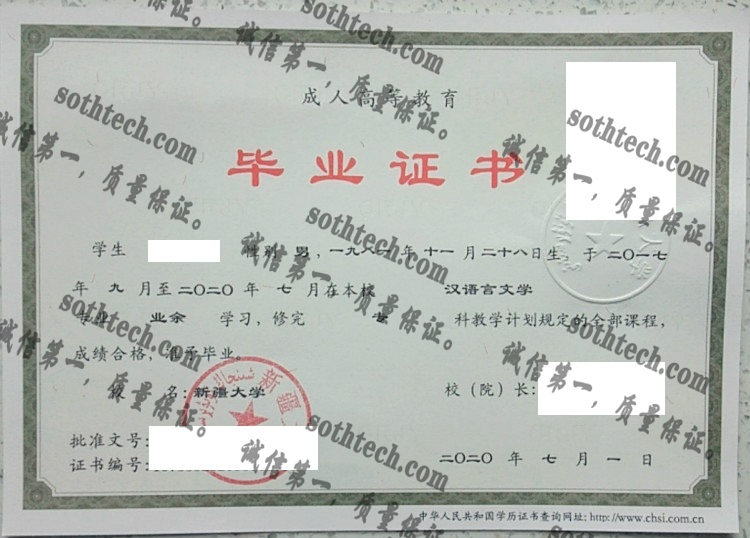 成人高等教育
毕业证书
学生 性别 男，一九八一年 十一月二十八日生 于 二〇一七
年 九 月至 二〇二〇 年 七 月在本校 汉语言文学
专业 业余 学习，修完 科教学计划规定的全部课程，
成绩合格，准予毕业。
校 名：新疆大学 校（院）长：
批准文号：
证书编号： 二〇二〇 年 七 月 一 日
中华人民共和国学历证书查询网址：http://www.chsi.com.cn
sothtech.com
诚信第一，质量保证。
sothtech.com
诚信第一，质量保证。
sothtech.com
诚信第一，质量保证。
sothtech.com
诚信第一，质量保证。
sothtech.com
诚信第一，质量保证。
sothtech.com
诚信第一，质量保证。
sothtech.com
诚信第一，质量保证。